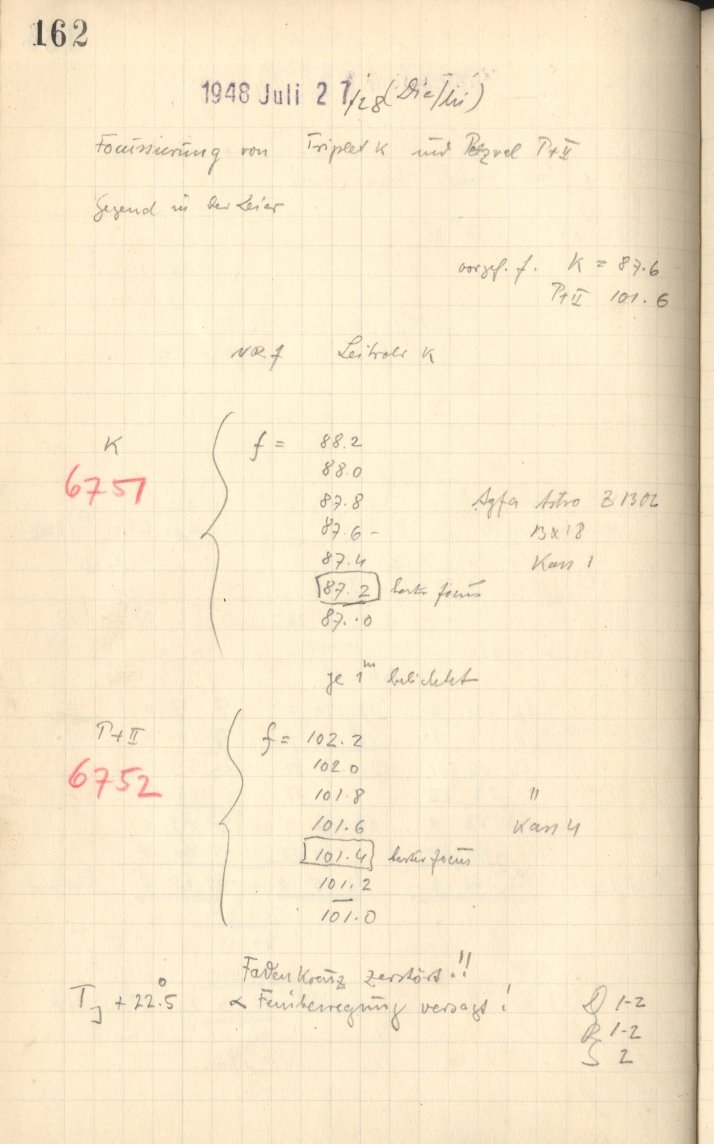 162
1948 Juli 27/28 (Die/Mi)
Focussierung von Triplet K und Petzval P+II
Gegend in der Leier
vorgef. f. K = 87.6
P+II 101.6
Leitrohr K
K
6751
f = 88.2
88.0
87.8 Agfa Astro Z
87.6 -
87.4 Kass 1
87.2 bester focus
87.0
je 1m belichtet
P+II
6752
f = 102.2
102.0
101.8 "
101.6 Kass 4
101.4 bester focus
101.2
101.0
Fadenkreuz zerstört!!
T + 22.°5 α Feinbewegung versagt!
D 1-2
R 1-2
S 2